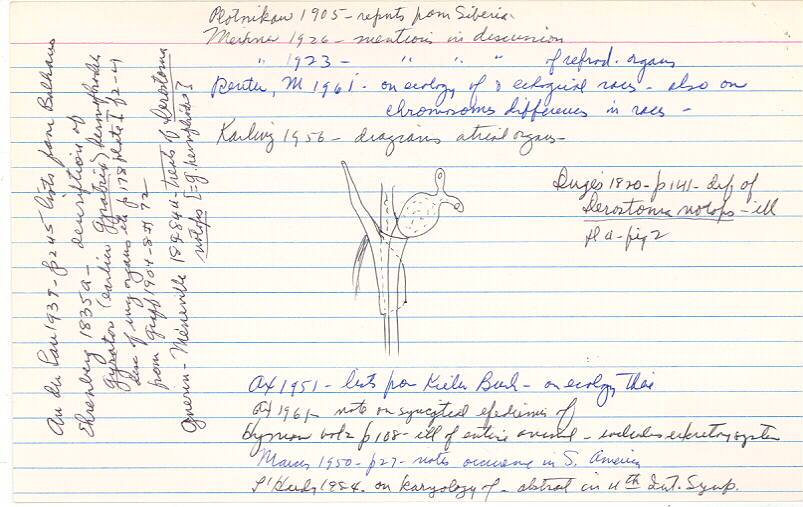 Plotnikow 1905 - reports from Siberia.
Meixner 1926 - mentions in discussion
" 1923 - " " " of reprod. organs
Reuter, M 1961 - on ecology of & ecological races - also on
chromosomes differences in races -
Karling 1956 - diagrams atrial organs -
Dugès 1820 - p 141 - def of
Derostoma notops - ill
pl 4 - fig 2
Ax 1951 - lists from Kieler Buch - on ecology
Ax 1961 - note on syncytial epidermis of
Hyman vol 2 p 108 - ill of entire animal - includes excretory system
Marcus 1950 - p 27 - notes occurence in S. America
L'Hardy 1984. on karyology of - abstract in 4th Int. Symp.
An der Lan 1939 - p 245 lists from Balkans
Ehrenberg 1835a - description of
Gyrator (earlier Gyratrix) hermaphrodes
disc of org organs etc p 178 plate I f 2-4
from Graff 1904-8 p 72
Guerin-Méneville 1844 - treats of Derostoma
notops [= G. hermaphrod.]